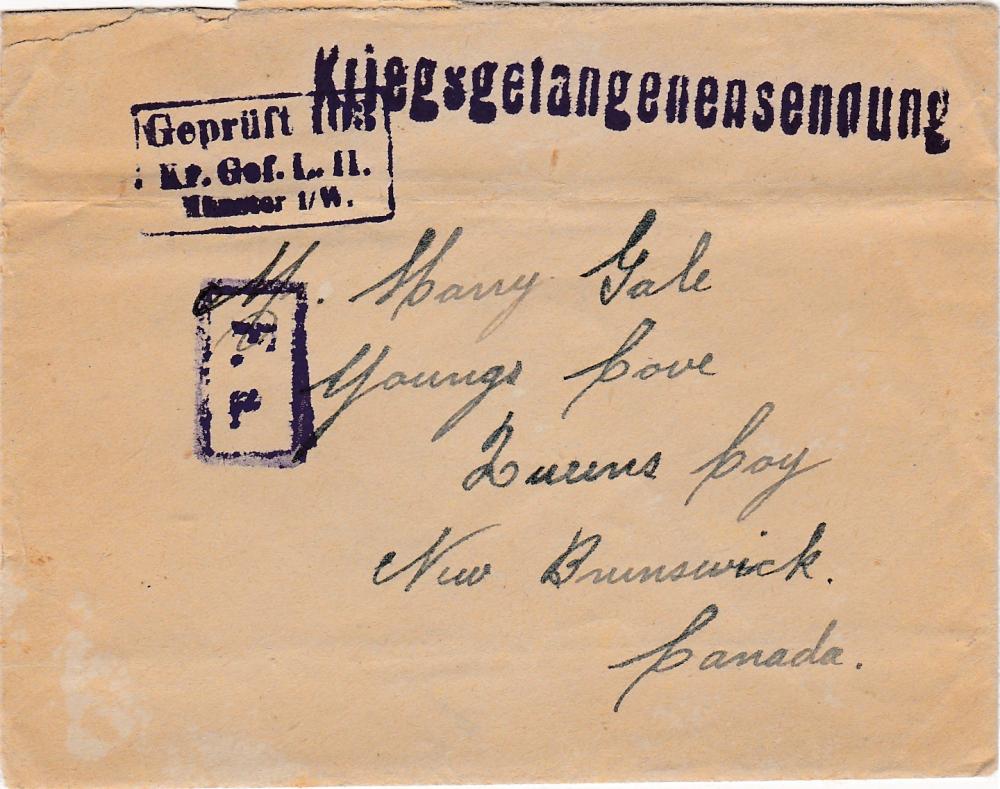 Kriegsgefangenensendung
Geprüft 103
Kr. Gef. L. II.
Münster i/W.
F. a.
Mr. Harry Gale
Youngs Cove
Queens Coy
New Brunswick.
Canada.